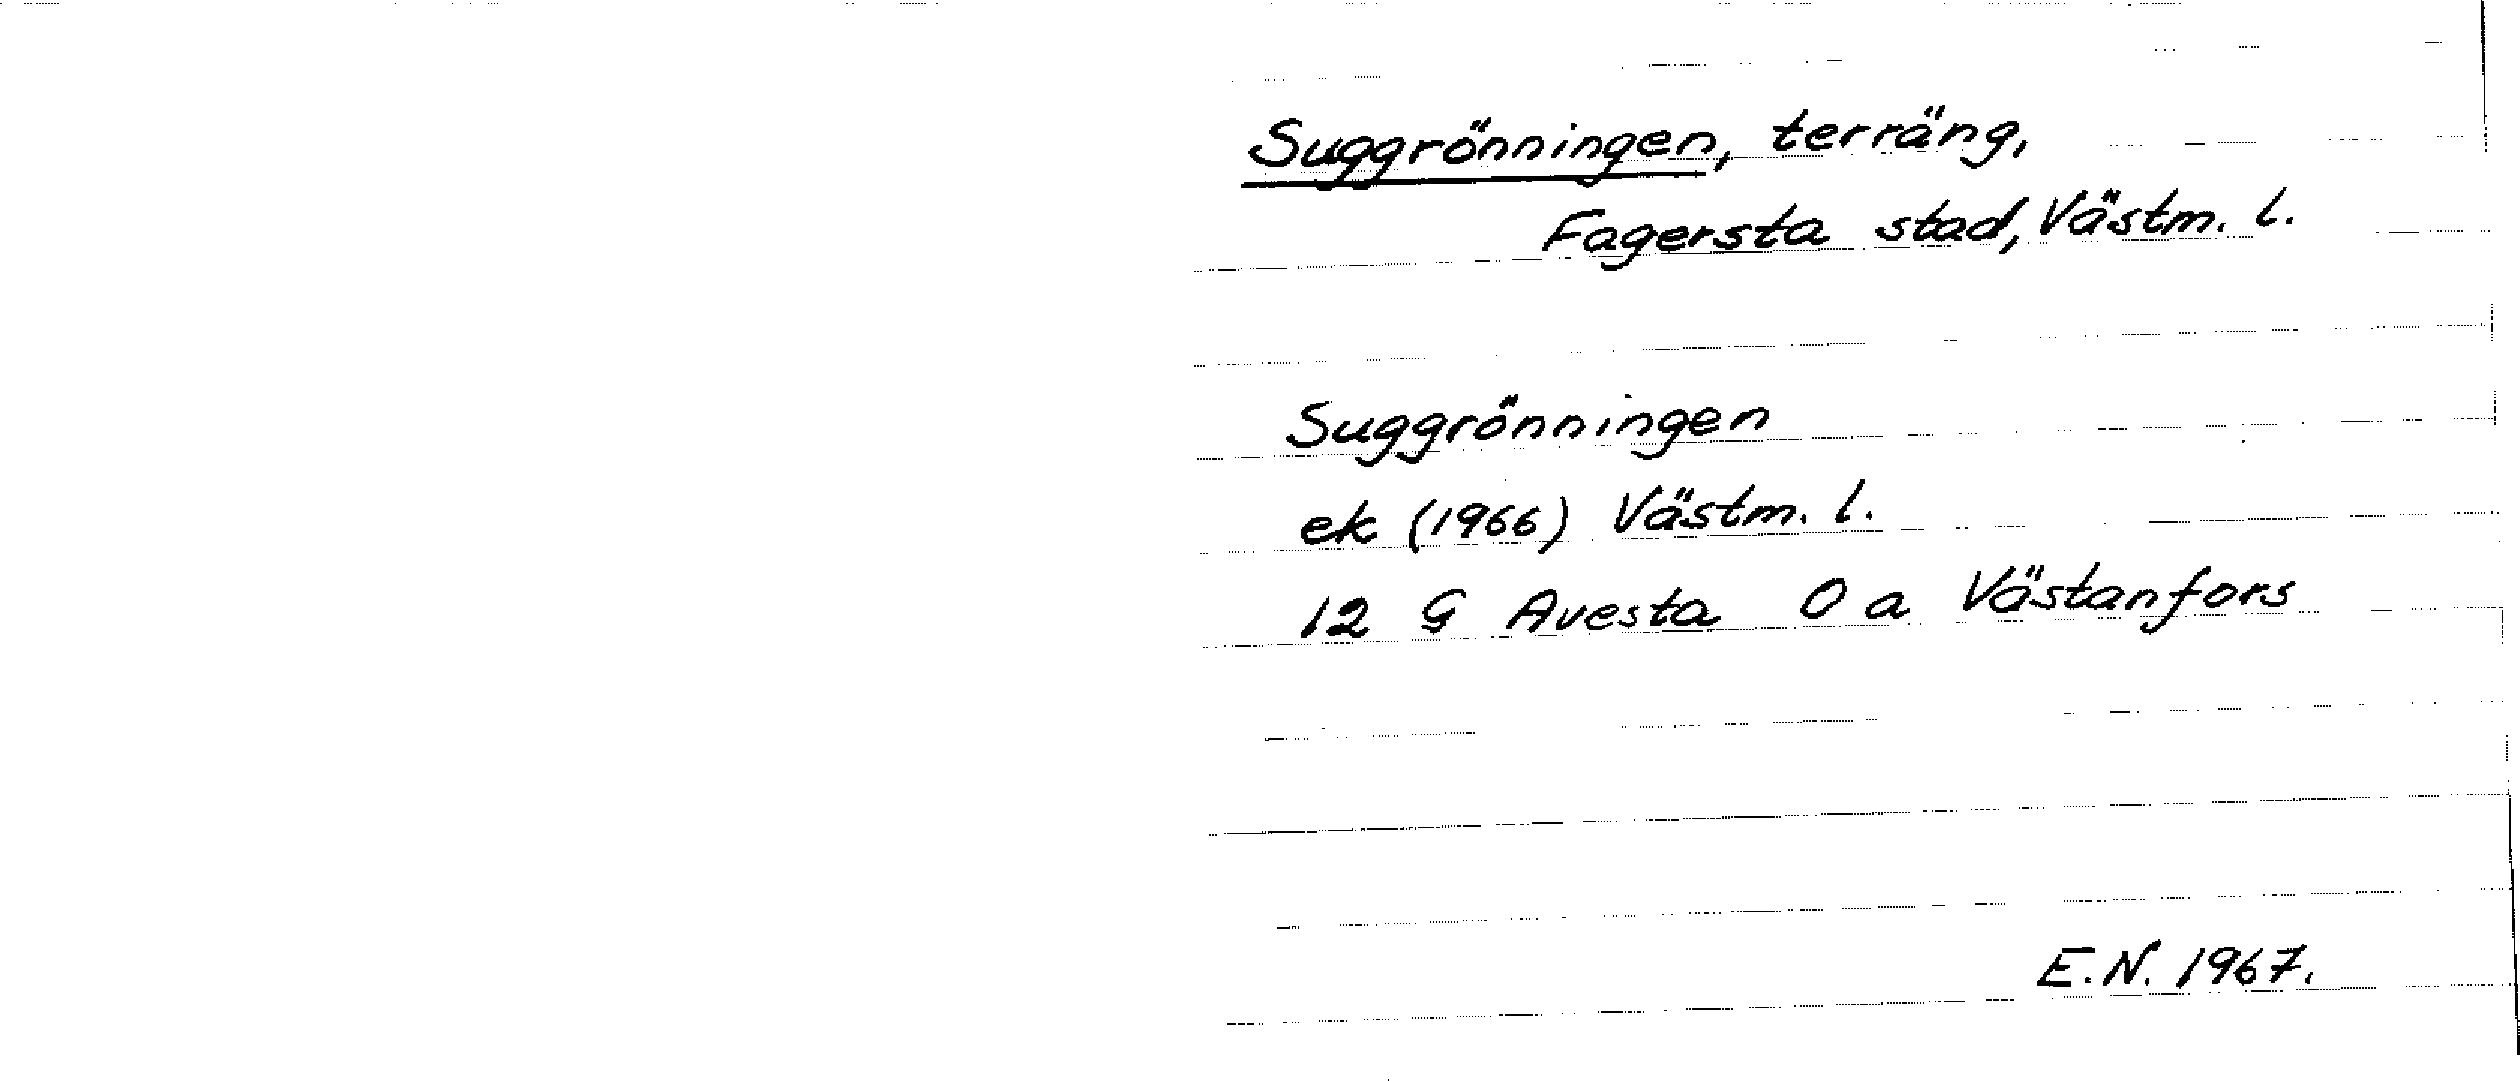 Suggrönningen, terräng,
Fagersta stad, Västm. l.
Suggrönningen
ek (1966) Västm. l.
12 G Avesta 0 a Västanfors
E.N. 1967.